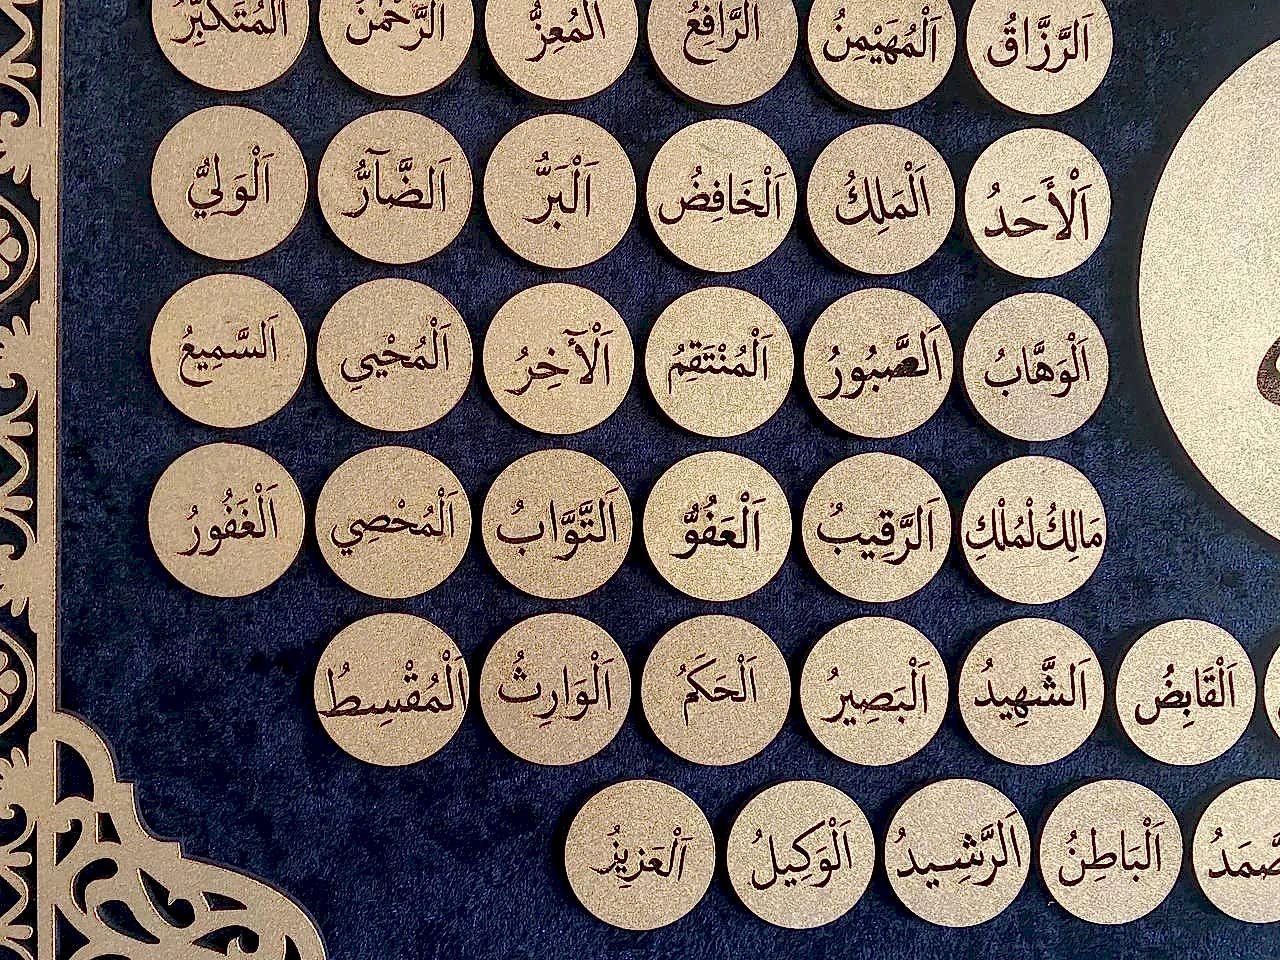 اَلرَّزَّاقُ اَلْمُهَيْمِنُ اَلرَّافِعُ اَلْمُعِزُّ اَلرَّحْمٰنُ اَلْمُتَكَبِّرُ
اَلْأَحَدُ اَلْمَلِكُ اَلْخَافِضُ اَلْبَرُّ اَلضَّآرُّ اَلْوَلِيُّ
اَلْوَهَّابُ اَلصَّبُورُ اَلْمُنْتَقِمُ اَلْآخِرُ اَلْمُحْيِي اَلسَّمِيعُ
مَالِكُ لْمُلْكِ اَلرَّقِيبُ اَلْعَفُوُّ اَلتَّوَّابُ اَلْمُحْصِي اَلْغَفُورُ
اَلْقَابِضُ اَلشَّهِيدُ اَلْبَصِيرُ اَلْحَكَمُ اَلْوَارِثُ اَلْمُقْسِطُ
اَلْبَاطِنُ اَلرَّشِيدُ اَلْوَكِيلُ اَلْعَزِيزُ